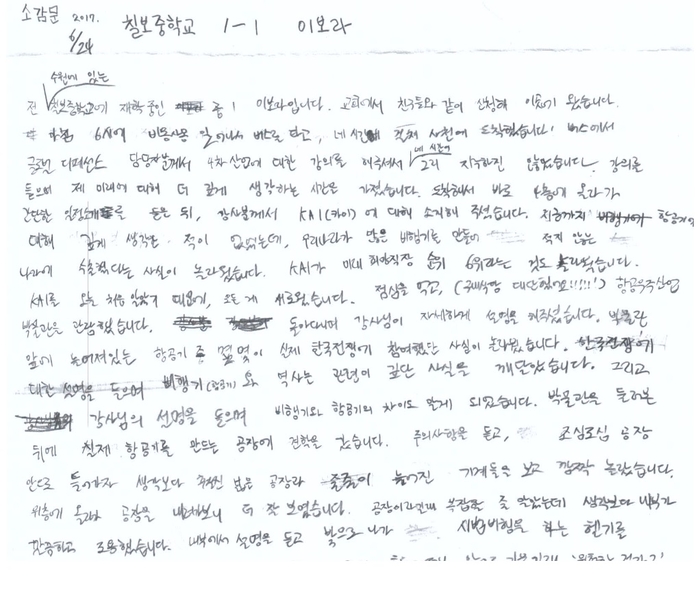 소감문 2017. 6/24 칠보중학교 1-1 이보라
수원에 있는
전 칠보중학교에 재학중인 중1 이보라입니다. 교회에서 친구들과 같이 신청해 이곳에 왔습니다.
아침 6시에 일어나서 버스를 타고, 네 시간에 걸쳐 사천에 도착했습니다. 버스에서
글로벌 디펜스 담당자분께서 4차 산업에 대한 강의를 해주셔서 네 시간이 그리 지루하진 않았습니다. 강의를
들으며 제 미래에 대해 더 깊게 생각하는 시간을 가졌습니다. 도착해서 바로 4층에 올라가
간단한 일정소개를 들은 뒤, 강사분께서 KAI(카이)에 대해 소개해 주셨습니다. 지금까지 항공기
대해 깊게 생각한 적이 없었는데, 우리나라가 많은 비행기를 만들어 적지 않은
나라에 수출했다는 사실이 놀라웠습니다. KAI가 미래 희망직장 순위 6위라는 것도 놀라웠습니다.
KAI를 오늘 처음 알았기 때문에, 모든 게 새로웠습니다. 점심을 먹고, (구내식당 대단했어요!!!!!) 항공우주산업
박물관을 관람했습니다. 돌아다니며 강사님이 자세하게 설명을 해주셨습니다. 박물관
앞에 놓여져있는 항공기 중 몇몇이 실제 한국전쟁에 참여했단 사실이 놀라웠습니다.
대한 설명을 들으며 비행기(항공기)와 역사는 관련이 깊단 사실을 깨달았습니다. 그리고
강사님의 설명을 들으며 비행기와 항공기의 차이도 알게 되었습니다. 박물관을 둘러본
뒤에 실제 항공기를 만드는 공장에 견학을 갔습니다. 주의사항을 듣고, 조심조심 공장
안으로 들어가자 생각보다 훨씬 넓은 공장과 줄줄이 늘어진 기계들을 보고 깜짝 놀랐습니다.
위층에 올라가 공장을 내려다보니 더 잘 보였습니다. 공장이라길래 복잡할 줄 알았는데 생각보다 내부가
깔끔하고 조용했습니다. 내부에서 설명을 듣고 밖으로 나가 시범비행을 하는 헬기를